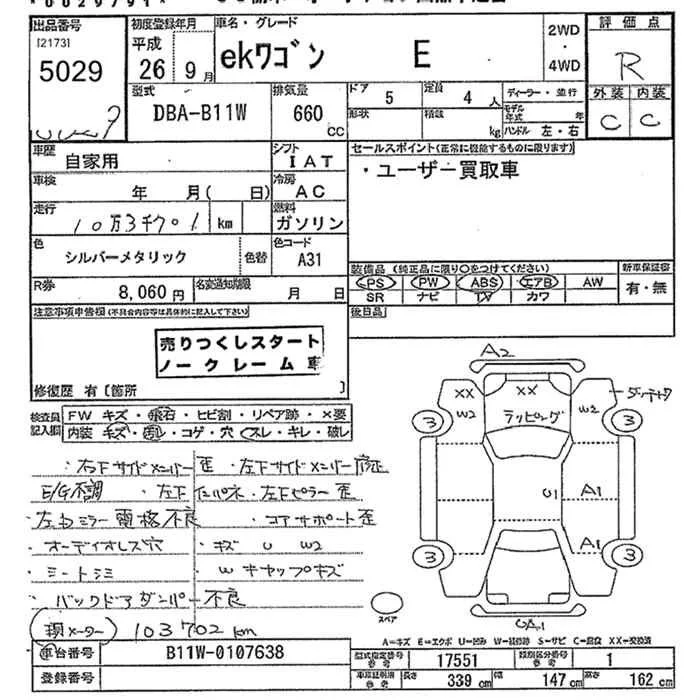 出品番号
[2173]
5029
初度登録年月
平成
26 9月
車名・グレード
ekワゴン E
2WD
・
4WD
評価点
R
外装 内装
C C
型式
DBA-B11W
排気量
660
CC
ドア 5
定員 4 人
形状
積載 kg
ディーラー・並行
モデル年式 年
ハンドル 左・右
車歴 自家用
シフト IAT
車検 年 月( 日)
冷房 AC
走行 10万3千701 km
燃料 ガソリン
色 シルバーメタリック 色替
色コード A31
R券 8,060円
名変通知期限 月 日
セールスポイント(正常に機能するものに限ります)
・ユーザー買取車
装備品 (純正品に限り○をつけてください)
PS PW ABS エアB AW
SR ナビ TV カワ
新車保証書
有・無
後日品
注意事項申告欄(不具合内容等は具体的に記入して下さい)
売りつくしスタート
ノークレーム車
修復歴 有[箇所 ]
検査員記入欄
FW キズ・飛石・ヒビ割・リペア跡・×要
内装 キズ・汚レ・コゲ・穴・スレ・キレ・破レ
・右下サイドメンバー歪 ・左下サイドメンバー修正
E/G不調 ・左下インパネ・左下ピラー歪
・左右ミラー電格不良 ・コアサポート歪
・オーディオレス穴 ・キズ U W2
・シートシミ ・Wキャップキズ
・バックドアダンパー不良
(現メーター) 103702km
A2
XX
W2
XX
ラッピング
W2
3
3
U1
A1
A1
3
3
スペア
UA1
A=キズ E=エクボ U=凹み W=補修跡 S=サビ C=腐食 XX=交換済
車台番号 B11W-0107638
登録番号
型式指定番号 参考 17551
類別区分番号 参考 1
車車証明済 参考
長さ 339 cm
幅 147 cm
高さ 162 cm